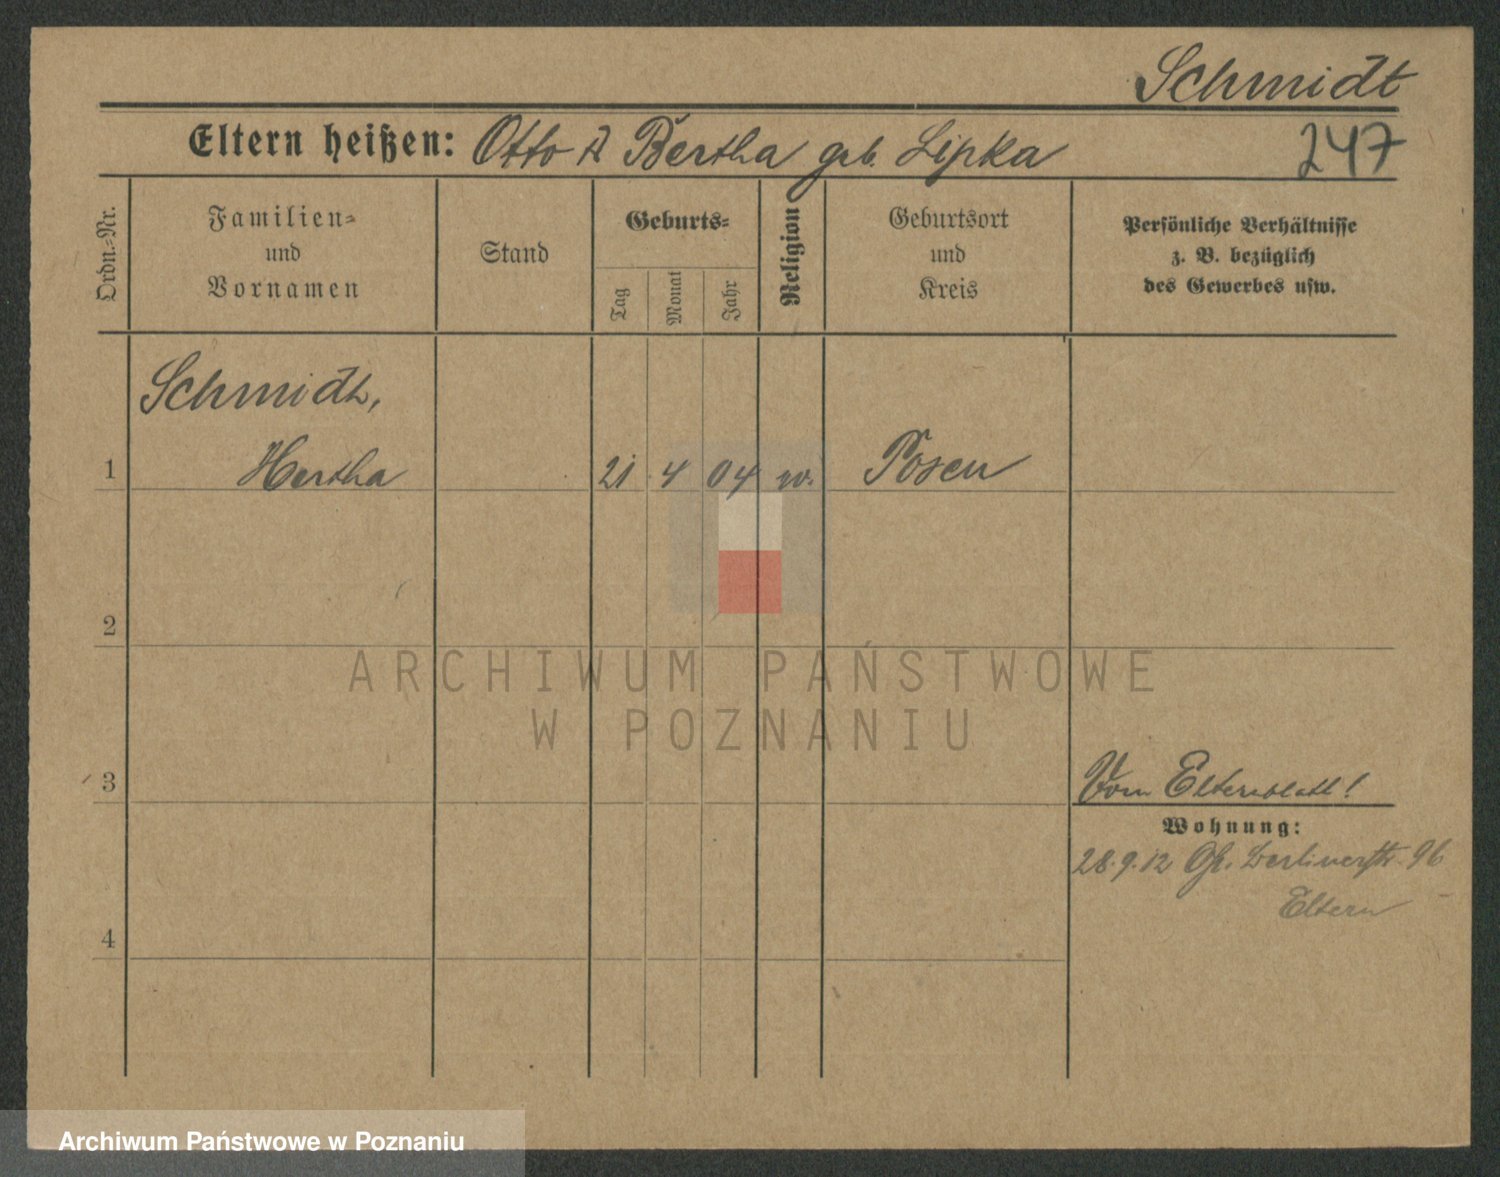 Schmidt
Eltern heißen: Otto & Bertha geb. Lipka 247
Ordn.-Nr.
Familien-
und
Vornamen
Stand
Geburts-
Tag
Monat
Jahr
Religion
Geburtsort
und
Kreis
Persönliche Verhältnisse
z. B. bezüglich
des Gewerbes usw.
Schmidt,
1 Hertha 21 4 04 Posen
2
ARCHIWUM PAŃSTWOWE
W POZNANIU
3 Vom Elternblatt!
Wohnung:
28.9.12 Gr. Berlinerstr. 96
Eltern
4
Archiwum Państwowe w Poznaniu